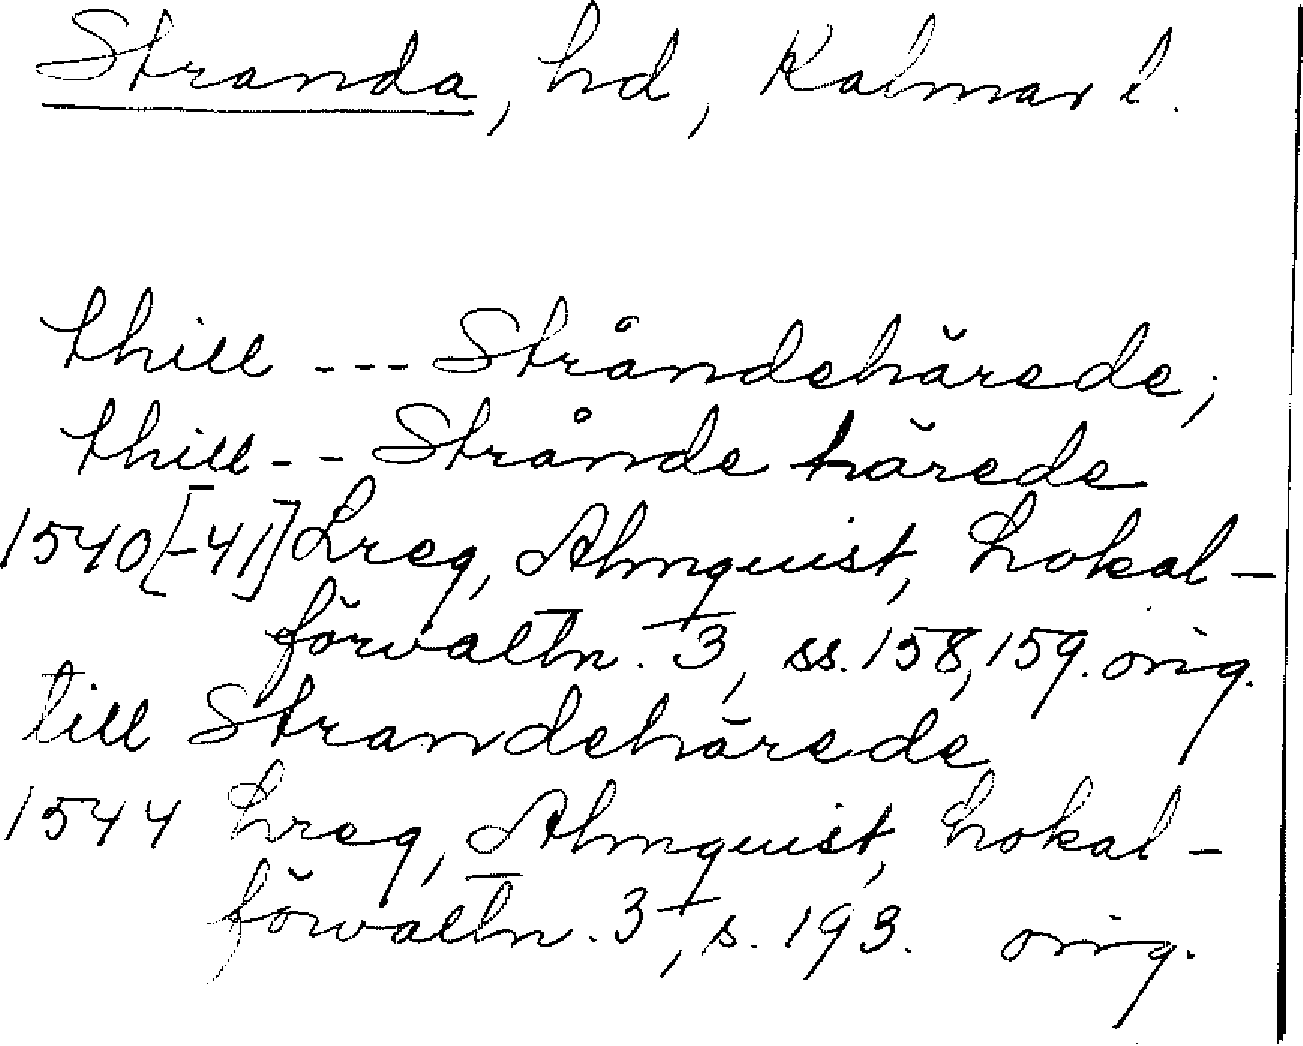 Stranda, hd, Kalmar l.
thill --- Ståndehärede;
thill -- Strånde härede
1540[-41] Lreg, Almquist, Lokal-
förvaltn. 3, ss. 158, 159. orig.
till Strandehärede
1544 Lreg, Almquist, Lokal-
förvaltn. 3, s. 193. orig.